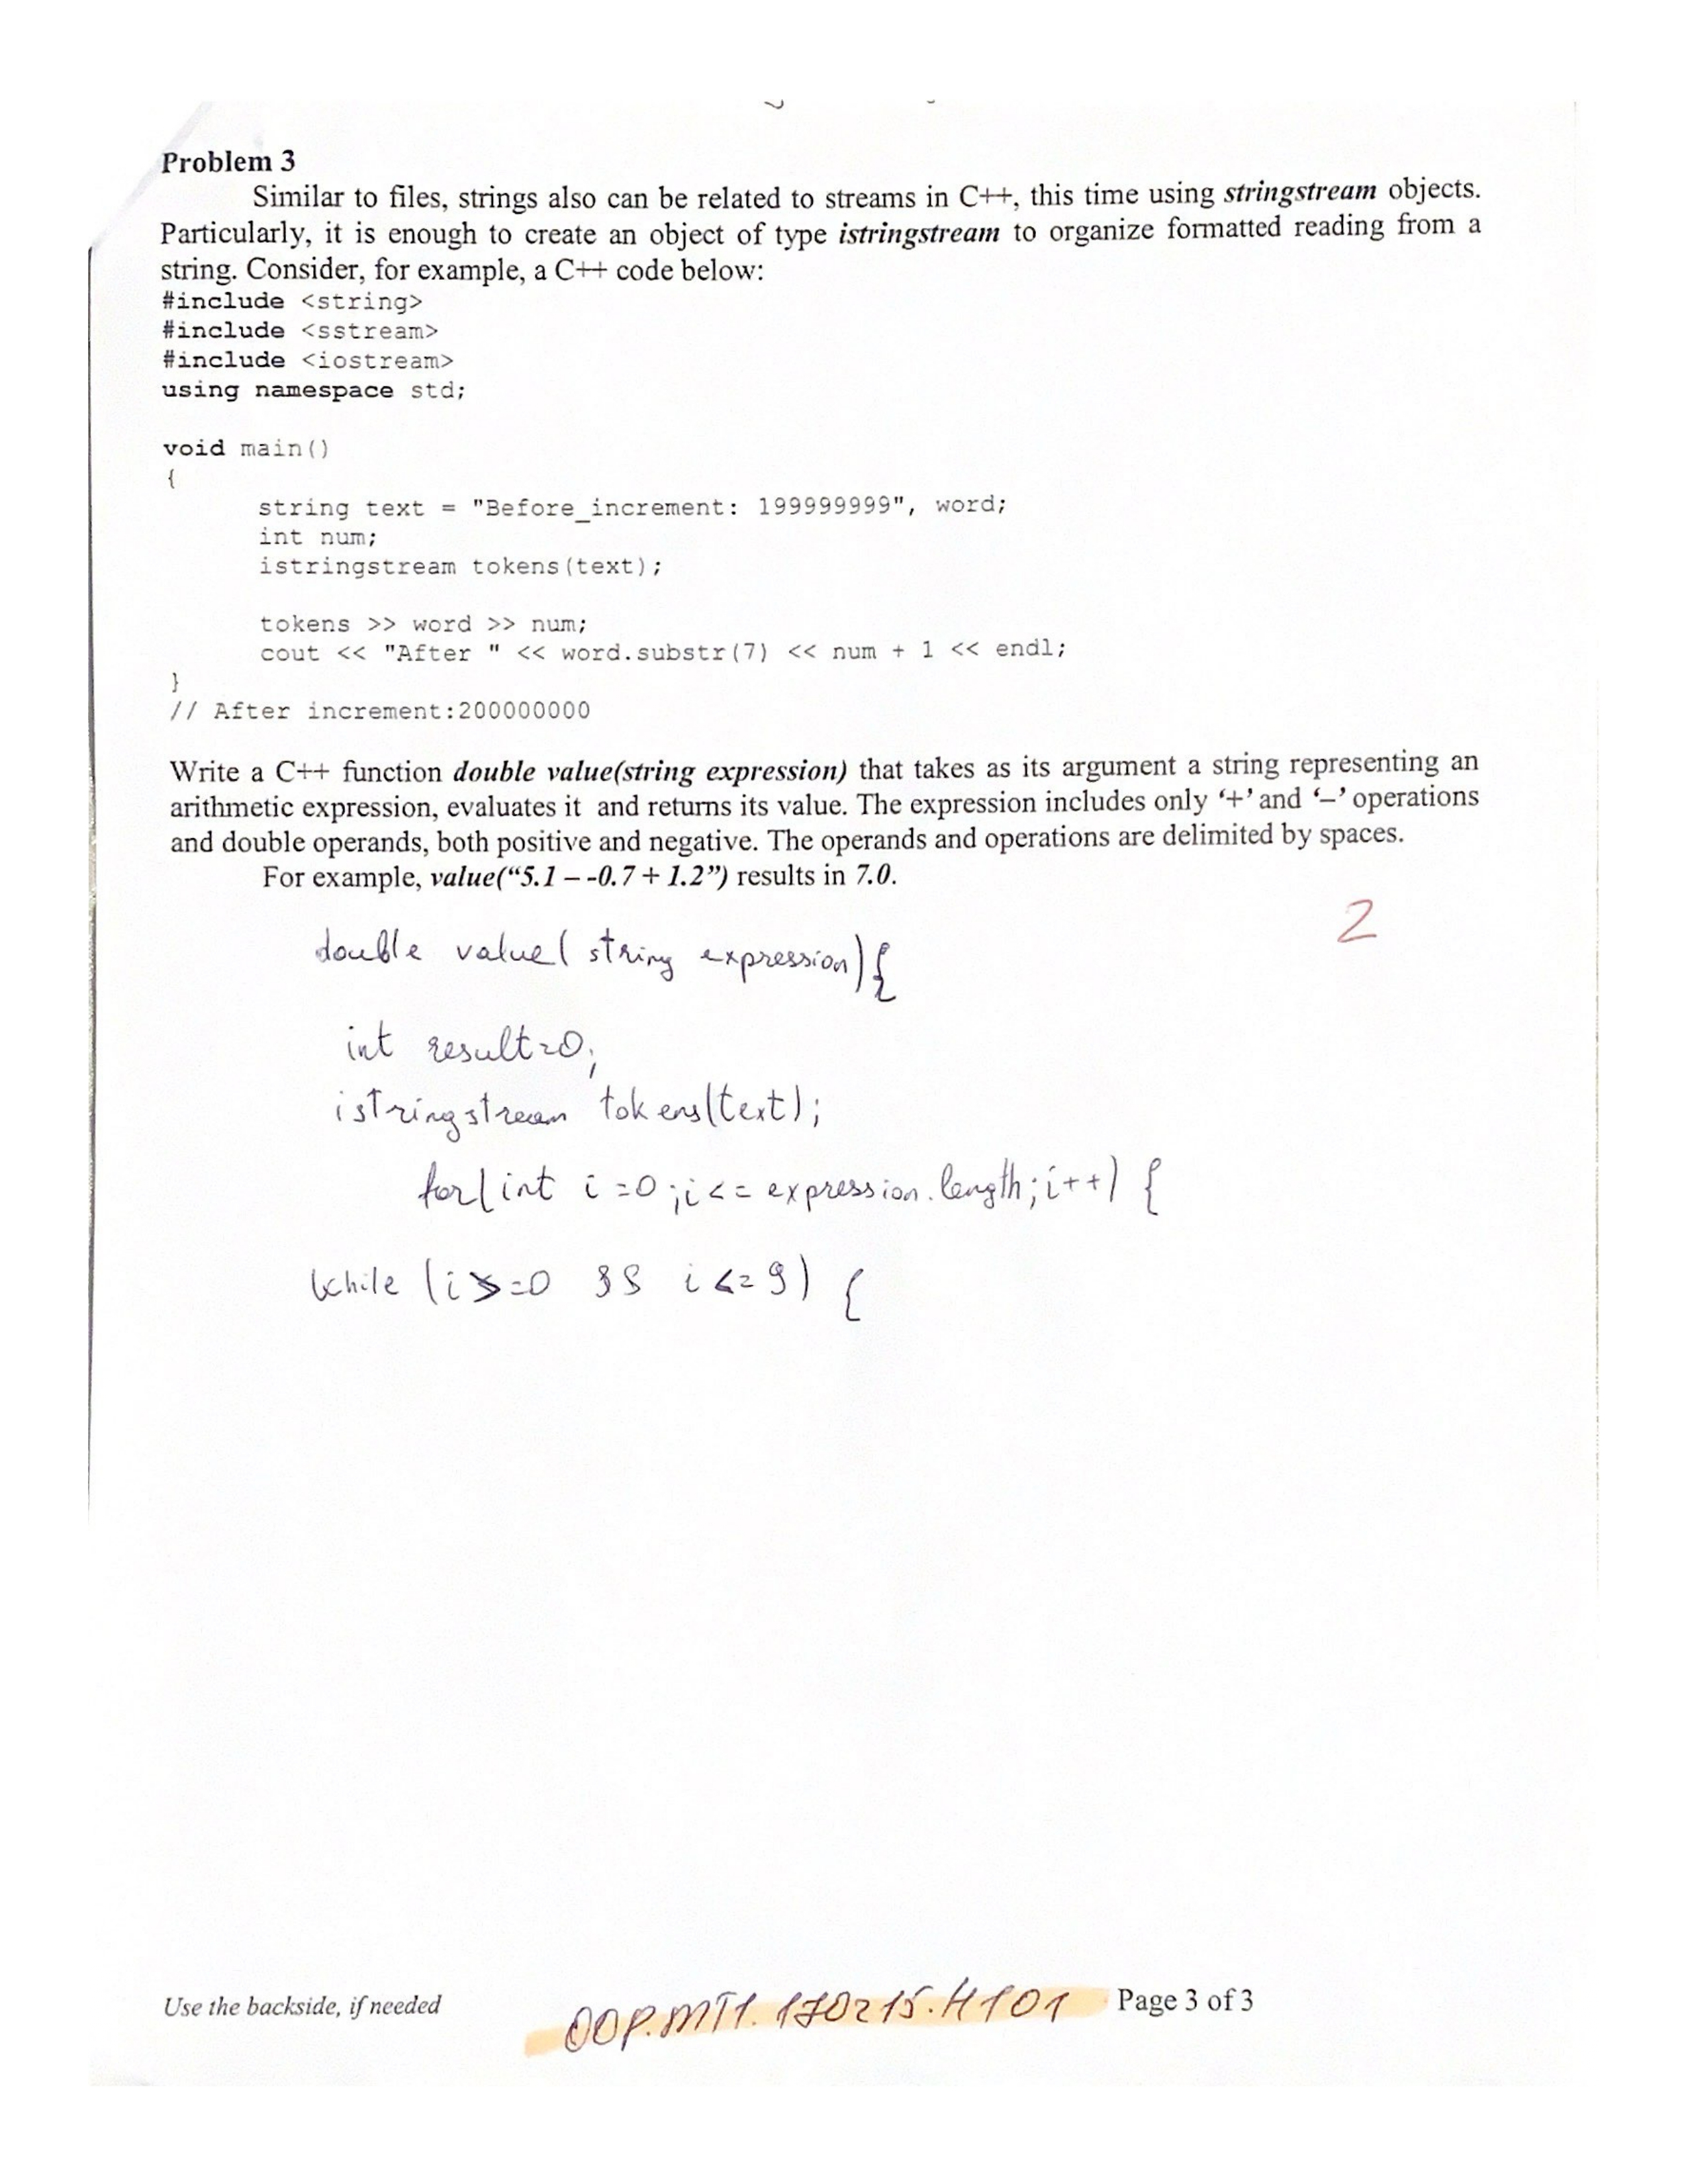 Problem 3
Similar to files, strings also can be related to streams in C++, this time using stringstream objects.
Particularly, it is enough to create an object of type istringstream to organize formatted reading from a
string. Consider, for example, a C++ code below:
#include <string>
#include <sstream>
#include <iostream>
using namespace std;
void main()
{
string text = "Before_increment: 199999999", word;
int num;
istringstream tokens(text);
tokens >> word >> num;
cout << "After " << word.substr(7) << num + 1 << endl;
}
// After increment:200000000
Write a C++ function double value(string expression) that takes as its argument a string representing an
arithmetic expression, evaluates it and returns its value. The expression includes only ‘+’ and ‘–’ operations
and double operands, both positive and negative. The operands and operations are delimited by spaces.
For example, value(“5.1 – -0.7 + 1.2”) results in 7.0.
2
double value( string expression){
int result=0;
istringstream tokens(text);
for(int i=0;i<= expression.length;i++) {
while (i>=0 && i<=9) {
Use the backside, if needed
OOP.MT1.170215.H101
Page 3 of 3